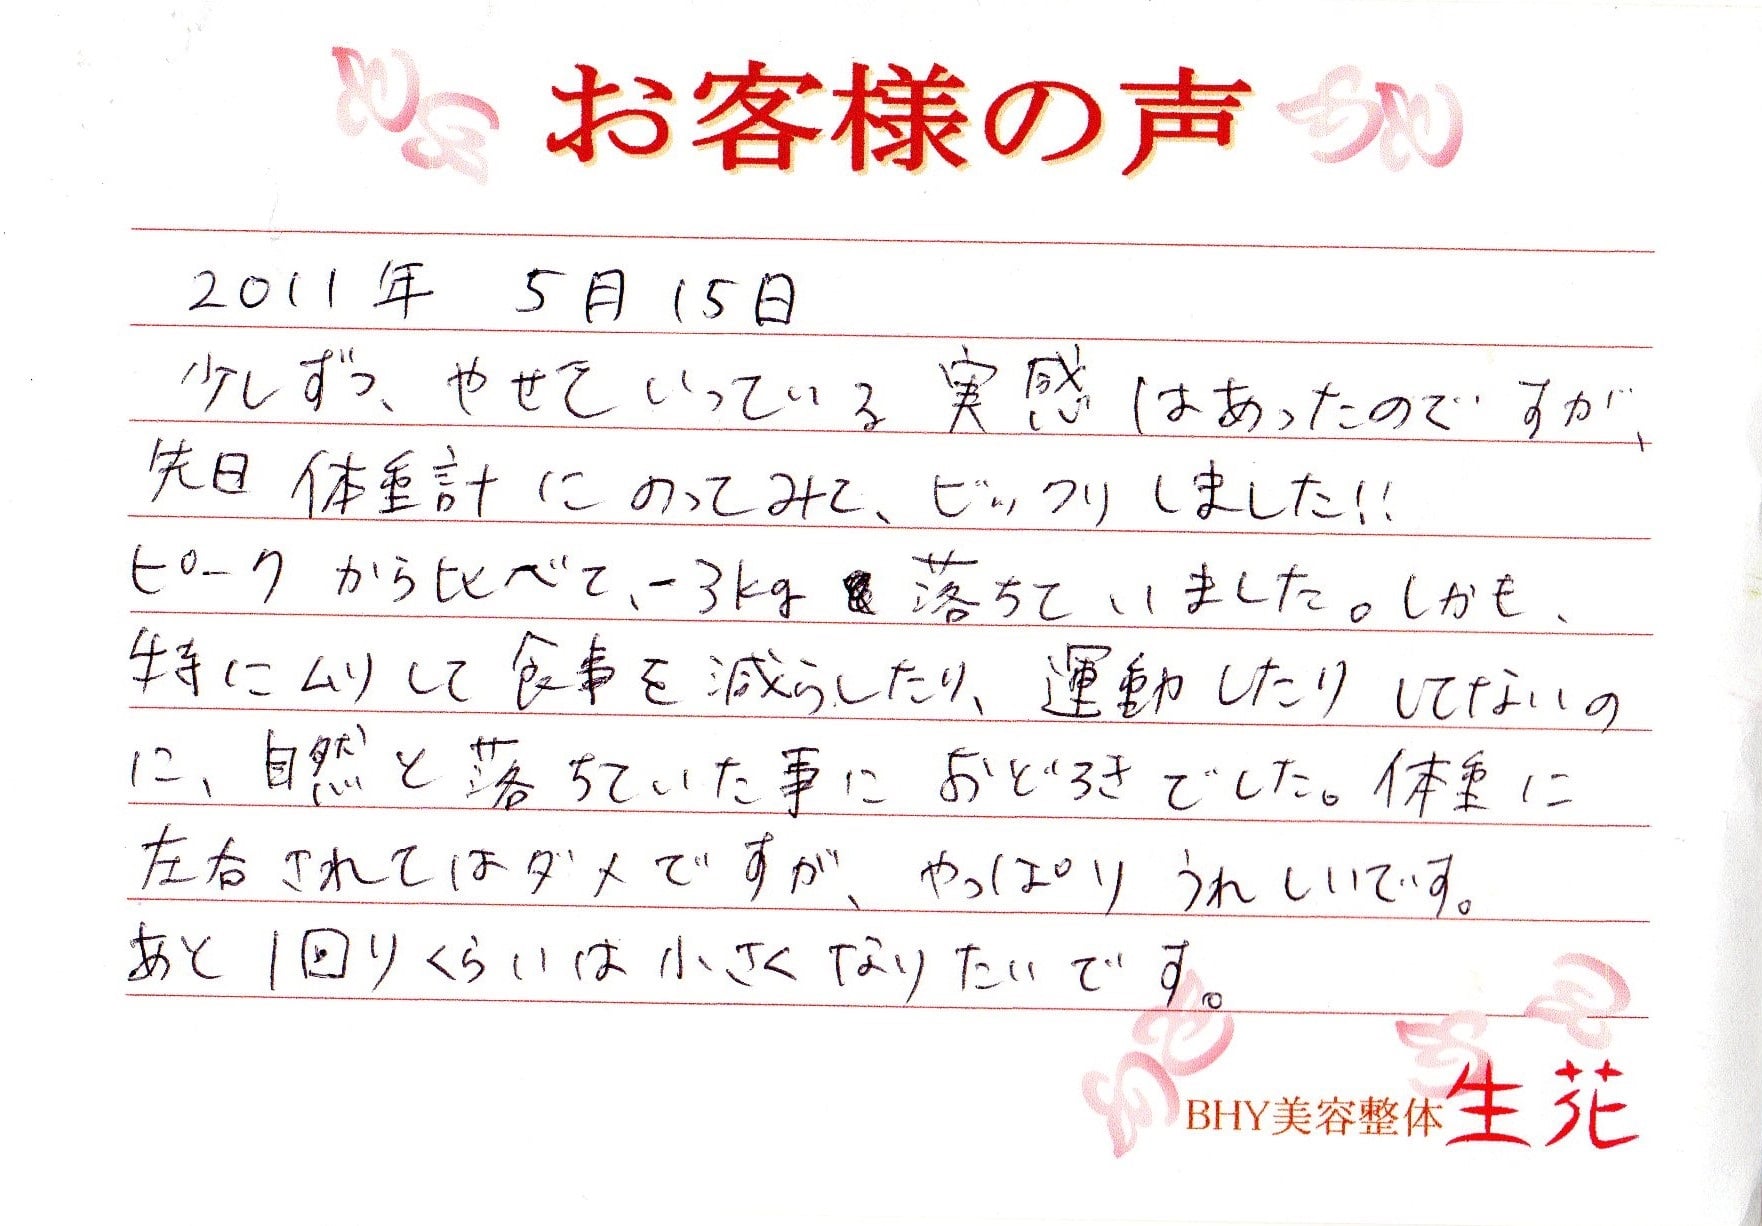 お客様の声
2011年 5月15日
少しずつ、やせていっている実感はあったのですが、
先日体重計にのってみて、ビックリしました!!
ピークから比べて、-3kg 落ちていました。しかも、
特にムリして食事を減らしたり、運動したりしてないの
に、自然と落ちていた事におどろきでした。体重に
左右されてはダメですが、やっぱりうれしいです。
あと1回りくらいは小さくなりたいです。
BHY美容整体 生花